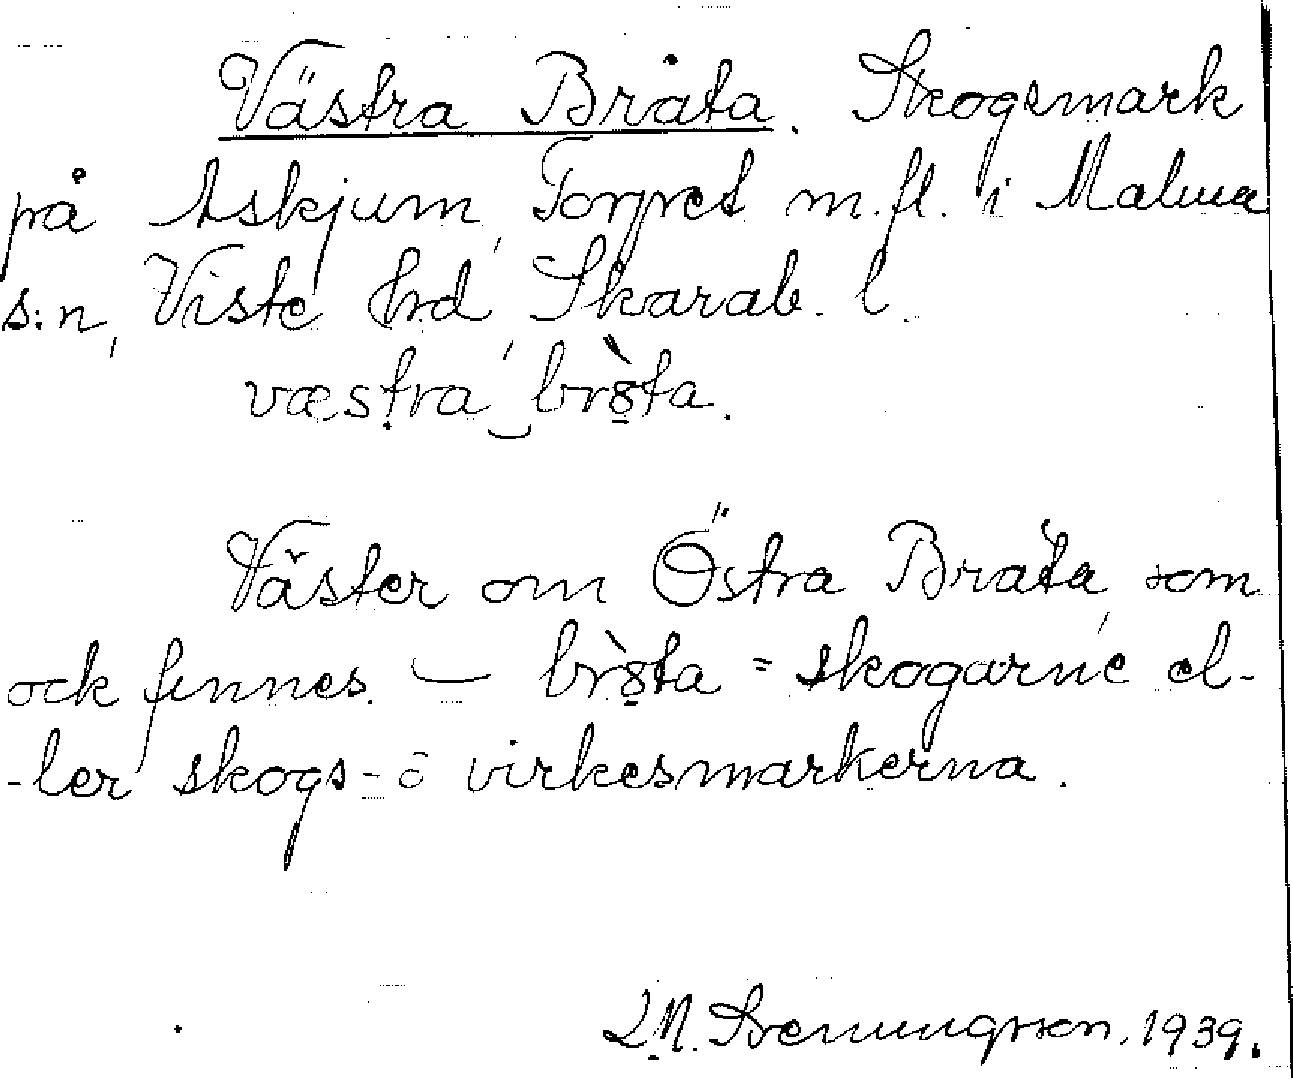 Västra Bråta. Skogsmark
på Askjum, Torpet m.fl. i Malma
s:n, Viste hrd, Skarab. l.
væstra bròta.
Väster om Östra Bråta, som
ock finnes. — bròta = skogarne el-
-ler skogs- o virkesmarkerna.
1939.